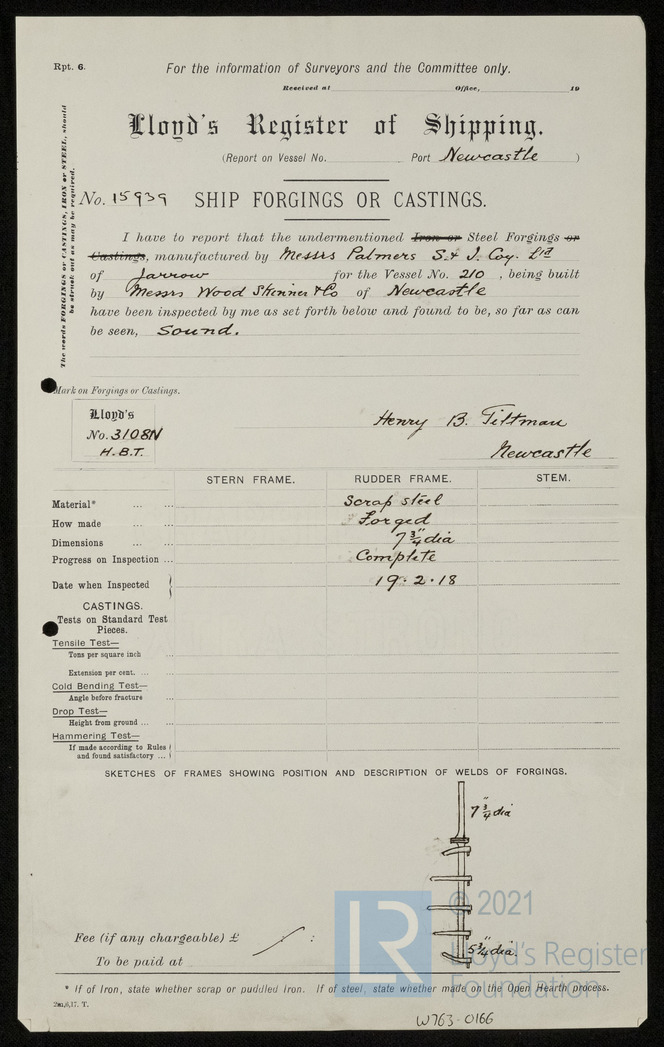 Rpt. 6.
For the information of Surveyors and the Committee only.
Received at Office, 19
Lloyd's Register of Shipping.
(Report on Vessel No. Port Newcastle )
The words FORGINGS or CASTINGS, IRON or STEEL, should
be struck out as may be required.
No. 15939 SHIP FORGINGS OR CASTINGS.
I have to report that the undermentioned Iron or Steel Forgings or
Castings, manufactured by Messrs Palmers S. & I. Coy. Ltd
of Jarrow for the Vessel No. 210 , being built
by Messrs Wood Skinner & Co of Newcastle
have been inspected by me as set forth below and found to be, so far as can
be seen, Sound.
Mark on Forgings or Castings.
Lloyd's
No. 3108N
H.B.T.
Henry B. Tiltman
Newcastle
STERN FRAME. RUDDER FRAME. STEM.
Material* ... ... Scrap steel
How made ... ... Forged
Dimensions ... ... 7 3/4" dia
Progress on Inspection ... Complete
Date when Inspected 19.2.18
CASTINGS.
Tests on Standard Test
Pieces.
Tensile Test—
Tons per square inch ...
Extension per cent. ... ...
Cold Bending Test—
Angle before fracture ...
Drop Test—
Height from ground ... ...
Hammering Test—
If made according to Rules
and found satisfactory ...
SKETCHES OF FRAMES SHOWING POSITION AND DESCRIPTION OF WELDS OF FORGINGS.
7 3/4" dia
5 3/4" dia.
Fee (if any chargeable) £ :
To be paid at
LR
© 2021
Lloyd's Register
Foundation
* If of Iron, state whether scrap or puddled Iron. If of steel, state whether made on the Open Hearth process.
2m,6,17. T.
W763-0166